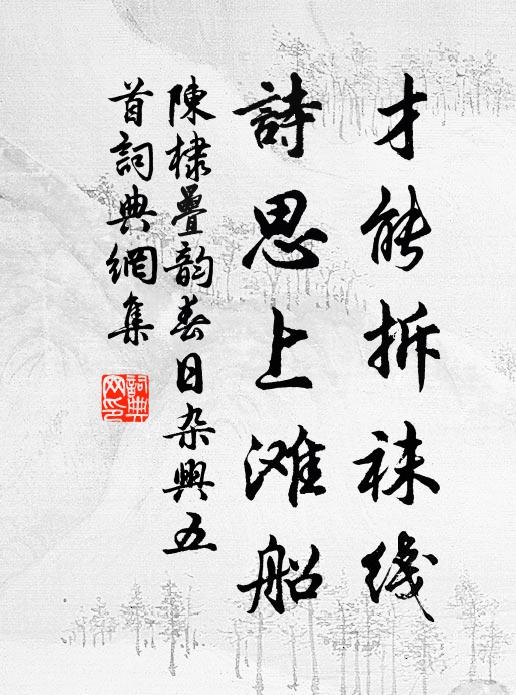 才能拆袜线
詩思上滩船
陳棣疊韵春日杂興五
首詞典網集
詞典
网印